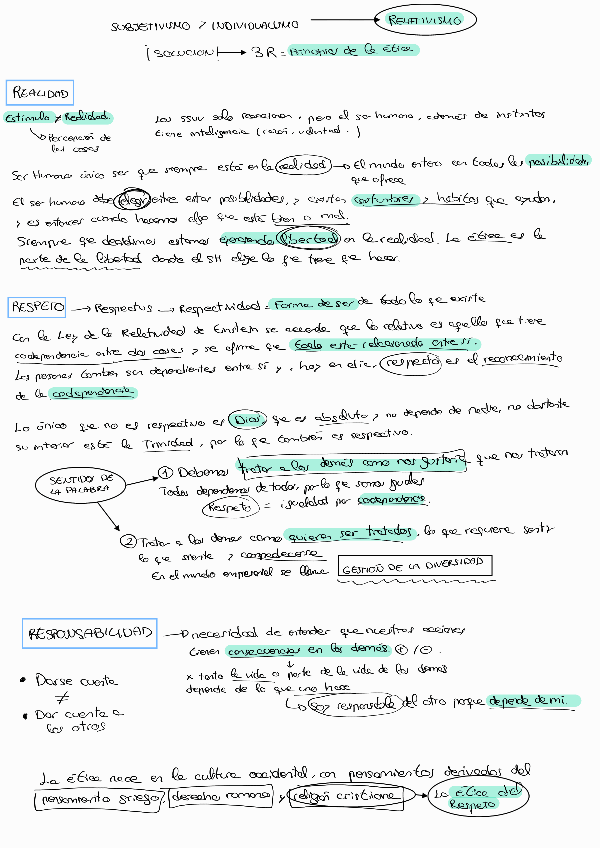 SUBJETIVISMO / INDIVIDUALISMO → RELATIVISMO
¡SOLUCIÓN! → 3R = Principios de la ética
REALIDAD
Estímulo ≠ Realidad.
↳ Percepción de las cosas
Los SSVV solo reaccionan, pero el ser humano, además de instintos
tiene inteligencia (razón, voluntad...)
Ser Humano único ser que siempre está en la realidad → El mundo entero con todas las posibilidades
que ofrece
El ser humano debe elegir entre estas posibilidades, y existen costumbres y hábitos que ayudan,
y es entonces cuando hacemos algo que está bien o mal.
Siempre que decidimos estamos ejerciendo libertad en la realidad. La ética es la
parte de la libertad donde el SH elige lo que tiene que hacer.
RESPETO → Respectus → Respectividad = Forma de ser de todo lo que existe
Con la Ley de la Relatividad de Einstein se accede que lo relativo es aquello que tiene
codependencia entre dos cosas y se afirma que todo está relacionado entre sí.
Las personas también son dependientes entre sí y, hoy en día, respecto es el reconocimiento
de la codependencia
Lo único que no es respectivo es Dios, que es absoluto y no depende de nadie, no obstante
su interior está la Trinidad, por lo que también es respectivo.
SENTIDO DE LA PALABRA
① Debemos tratar a los demás como nos gustaría que nos trataran
Todos dependemos de todos, por lo que somos iguales
Respeto = igualdad por codependencia.
② Tratar a los demás como quieren ser tratados, lo que requiere sentir
lo que siente y compadecerse
En el mundo empresarial se llama GESTIÓN DE LA DIVERSIDAD
RESPONSABILIDAD → necesidad de entender que nuestras acciones
tienen consecuencias en los demás ⊕/⊖.
↓
x tanto la vida o parte de la vida de los demás
depende de lo que uno hace
↳ Soy responsable del otro porque depende de mi.
• Darse cuenta
≠
• Dar cuenta a los otros
La ética nace en la cultura occidental, con pensamientos derivados del
pensamiento griego, derecho romano y religión cristiana → La ética del Respeto